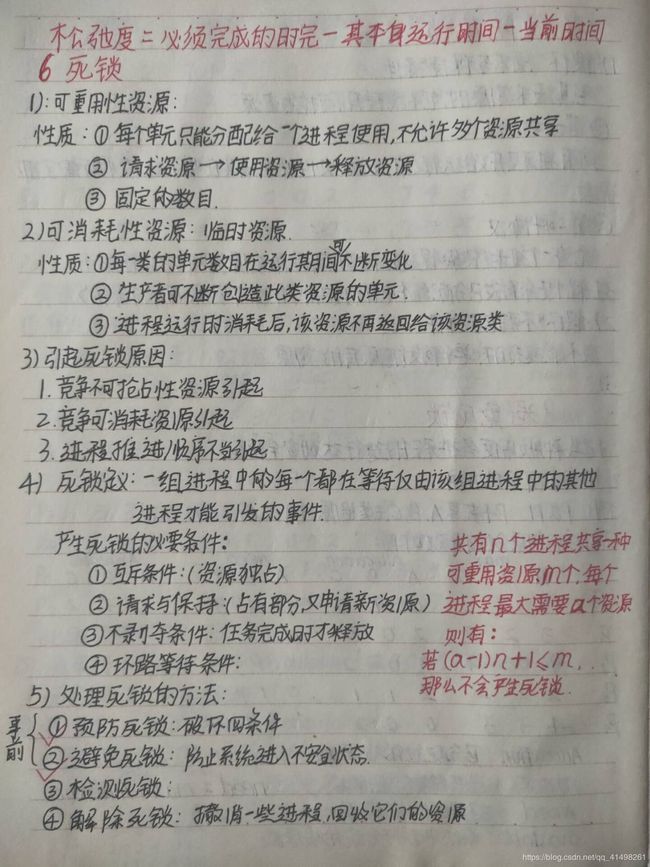 松弛度=必须完成的时完-其本身运行时间-当前时间
6 死锁
1):可重用性资源:
性质:①每个单元只能分配给一个进程使用,不允许多个资源共享
②请求资源→使用资源→释放资源
③固定的数目.
2)可消耗性资源:临时资源.
性质:①每一类的单元数目在运行其期间可不断变化
②生产者可不断创造此类资源的单元.
③进程运行时消耗后,该资源不再返回给该资源类
3)引起死锁原因:
1.竞争不可抢占性资源引起
2.竞争可消耗资源引起
3.进程推进顺序不当引起
4)死锁定义:一组进程中的每一个都在等待仅由该组进程中的其他
进程才能引发的事件.
产生死锁的必要条件:
①互斥条件:(资源独占)
②请求与保持:(占有部分,又申请新资源)
③不剥夺条件:任务完成时才释放
④环路等待条件:
共有n个进程共享一种
可重用资源m个,每个
进程最大需要a个资源
则有:
若(a-1)n+1≤m,
那么不会产生死锁.
5)处理死锁的方法:
事前
①预防死锁:破坏四条件
②避免死锁:防止系统进入不安全状态.
③检测死锁:
④解除死锁:撤消一些进程,回收它们的资源
https://blog.csdn.net/qq_41498261